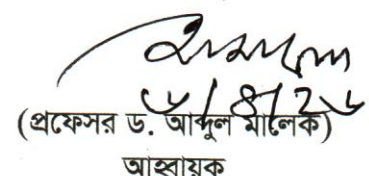 ৬/৪/২৬
(প্রফেসর ড. আব্দুল মালেক)
আহ্বায়ক